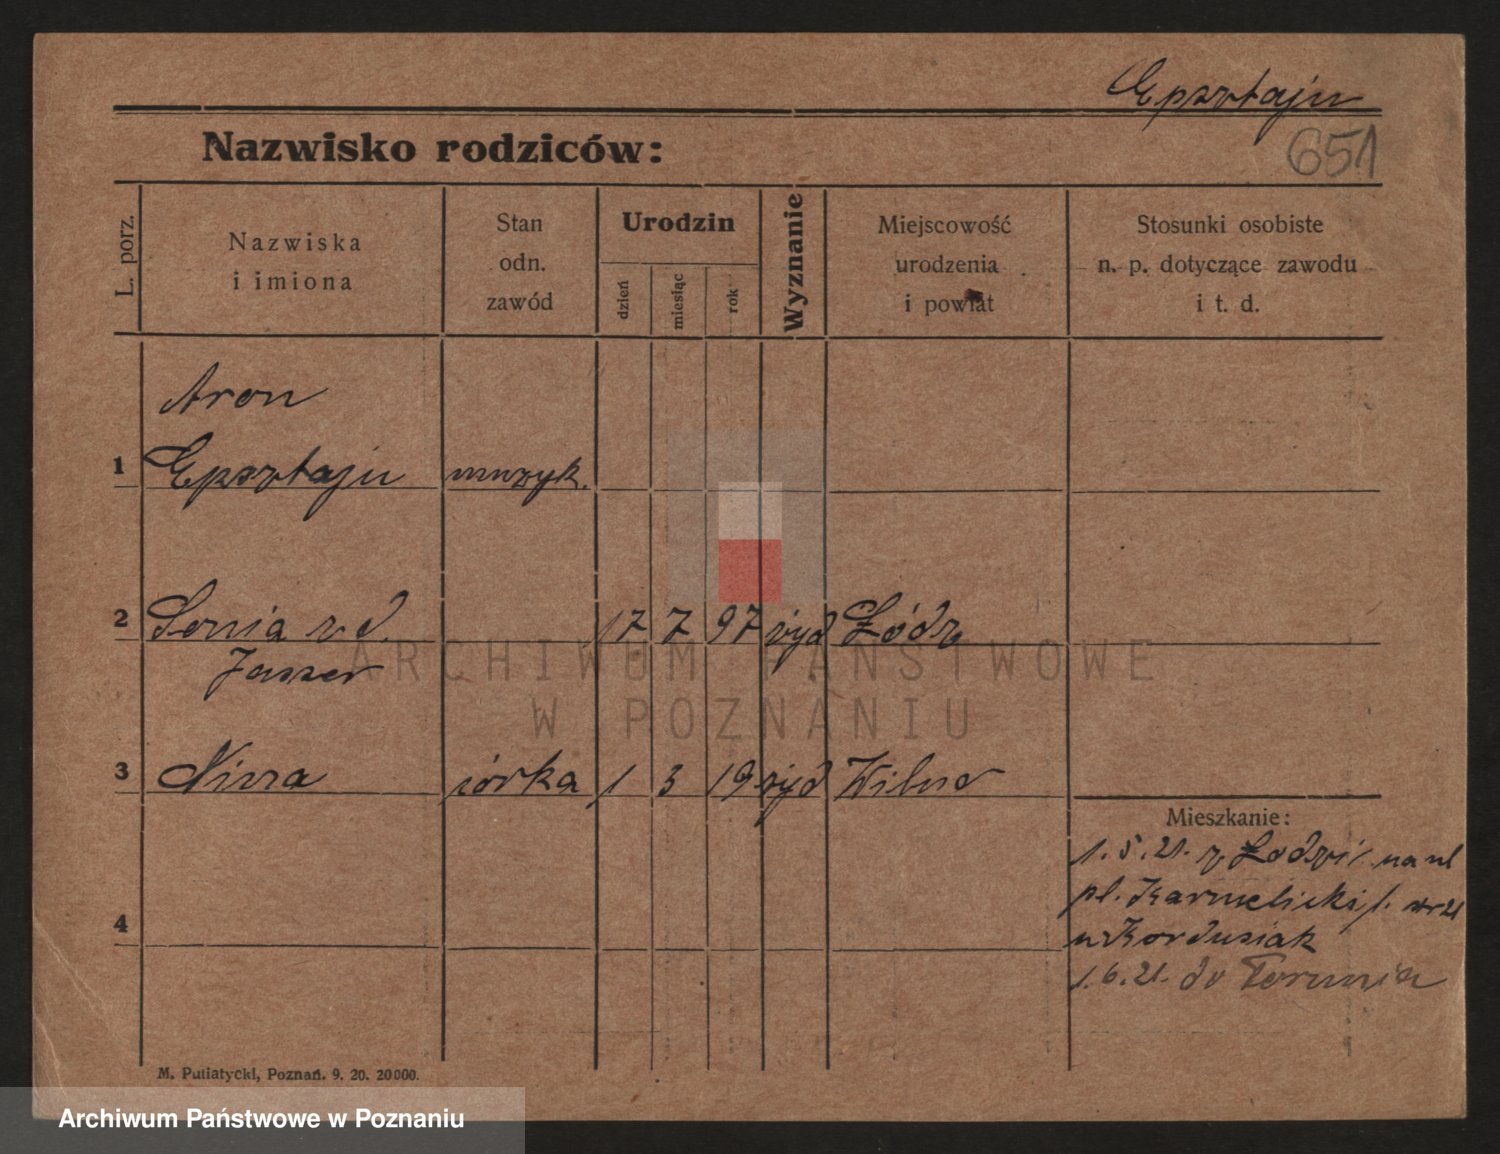 Epsztajn
Nazwisko rodziców:
651
L. porz.
Nazwiska
i imiona
Stan
odn.
zawód
Urodzin
dzień
miesiąc
rok
Wyznanie
Miejscowość
urodzenia
i powiat
Stosunki osobiste
n. p. dotyczące zawodu
i t. d.
Aron
1 Epsztajn muzyk.
2 Sonia zd. 17 7 97 żyd Łódź
Jasser
3 córka 1 3 19 żyd Wilno
Mieszkanie:
1. 5. 21. z Łodzi na ul
pl. Karmelicki nr 21
u Kordusiak
1. 6. 21. do Torunia
4
M. Putiatycki, Poznań. 9. 20. 20000.
ARCHIWUM PAŃSTWOWE
W POZNANIU
Archiwum Państwowe w Poznaniu